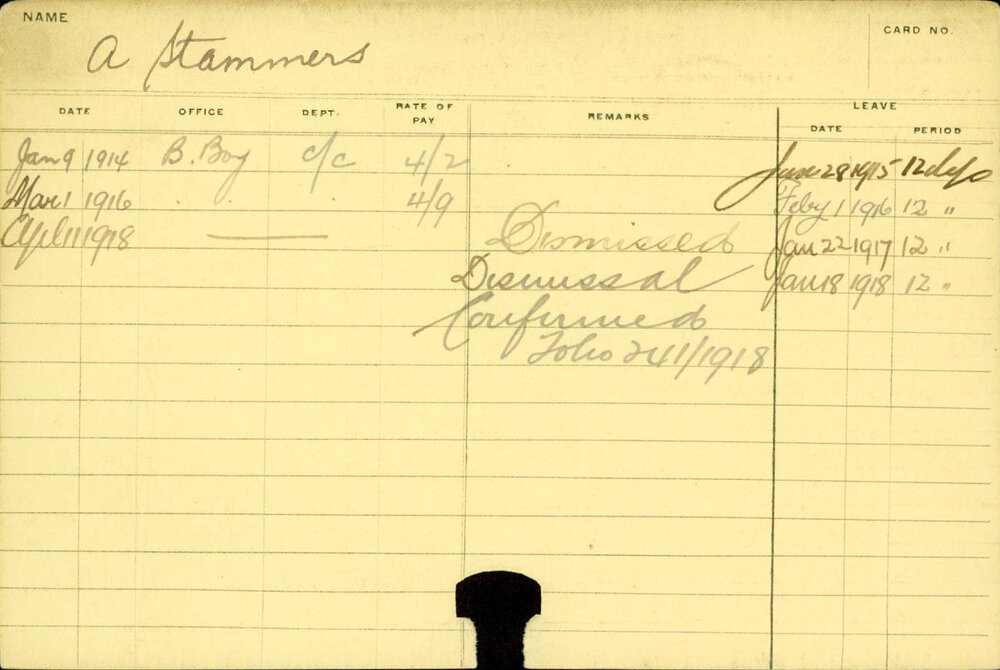 NAME
CARD NO.
A Stammers
DATE OFFICE DEPT. RATE OF PAY REMARKS LEAVE
DATE PERIOD
Jan 9 1914 B. Boy c/c 4/2 28 1915 12 days
Mar 1 1916 . . . 4/9 Feby 1 1916 12 "
April 11 1918 — Dismissed Jan 22 1917 12 "
Dismissal Jan 18 1918 12 "
Confirmed
Folio 241/1918